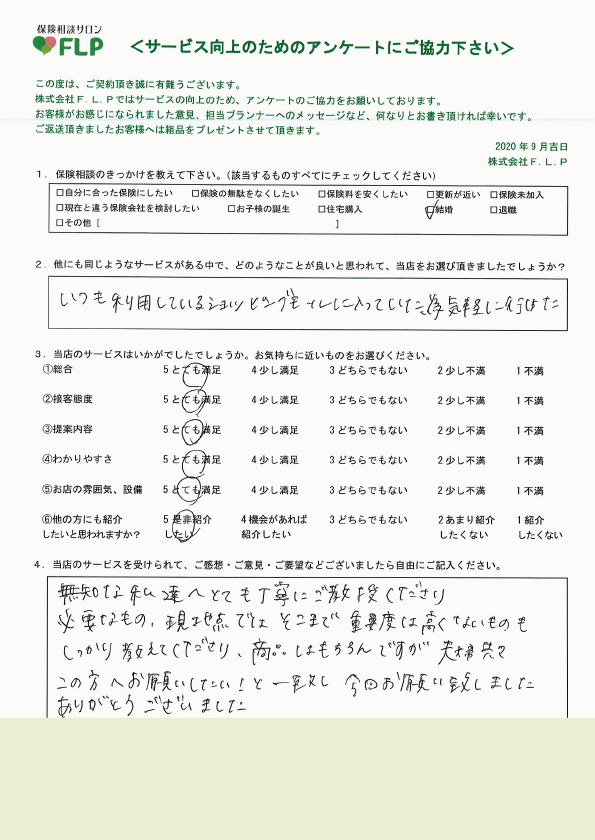 保険相談サロン
FLP
＜サービス向上のためのアンケートにご協力下さい＞
この度は、ご契約頂き誠に有難うございます。
株式会社Ｆ．Ｌ．Ｐではサービスの向上のため、アンケートのご協力をお願いしております。
お客様がお感じになられました意見、担当プランナーへのメッセージなど、何なりとお書き頂ければ幸いです。
ご返送頂きましたお客様へは粗品をプレゼントさせて頂きます。
2020 年 9 月吉日
株式会社Ｆ．Ｌ．Ｐ
１．保険相談のきっかけを教えて下さい。（該当するものすべてにチェックしてください）
□自分に合った保険にしたい □保険の無駄をなくしたい □保険料を安くしたい □更新が近い □保険未加入
□現在と違う保険会社を検討したい □お子様の誕生 □住宅購入 □結婚 □退職
□その他［ ］
２．他にも同じようなサービスがある中で、どのようなことが良いと思われて、当店をお選び頂きましたでしょうか？
いつも利用しているショッピングモールに入っていた為気軽に行けた
３．当店のサービスはいかがでしたでしょうか。お気持ちに近いものをお選びください。
①総合 5 とても満足 4 少し満足 3 どちらでもない 2 少し不満 1 不満
②接客態度 5 とても満足 4 少し満足 3 どちらでもない 2 少し不満 1 不満
③提案内容 5 とても満足 4 少し満足 3 どちらでもない 2 少し不満 1 不満
④わかりやすさ 5 とても満足 4 少し満足 3 どちらでもない 2 少し不満 1 不満
⑤お店の雰囲気、設備 5 とても満足 4 少し満足 3 どちらでもない 2 少し不満 1 不満
⑥他の方にも紹介 5 是非紹介 4 機会があれば 3 どちらでもない 2 あまり紹介 1 紹介
したいと思われますか？ したい 紹介したい したくない したくない
４．当店のサービスを受けられて、ご感想・ご意見・ご要望などございましたら自由にご記入ください。
無知な私達へとても丁寧にご教授くださり
必要なもの、現時点ではそこまで重要度は高くないものも
しっかり教えてくださり、商品はもちろんですが夫婦共々
この方へお願いしたい！と一致し今回お願い致しました
ありがとうございました